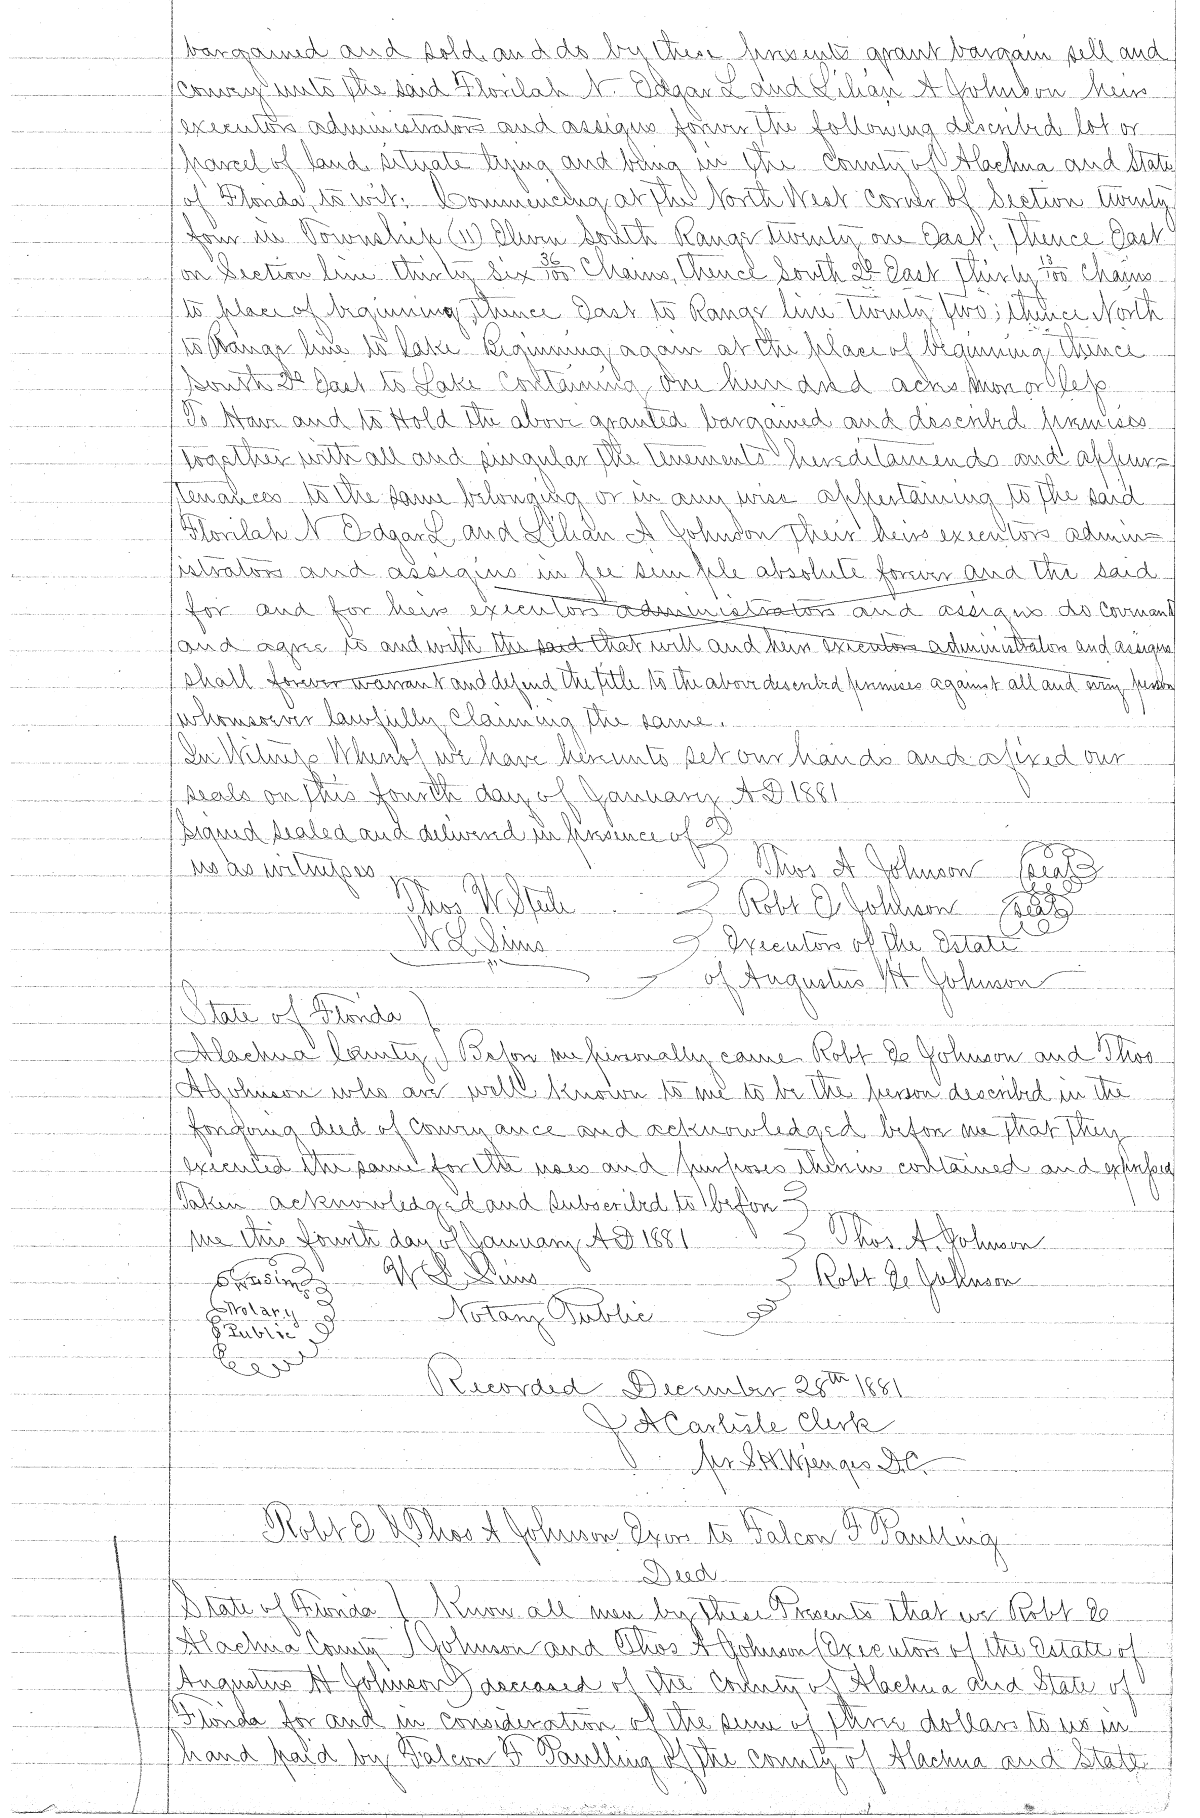 bargained and sold and do by these presents grant bargain sell and
convey unto the said Florilah N. Edgar L and Lilian A Johnson heirs
executors administrators and assigns forever the following described lot or
parcel of land situate lying and being in the County of Alachua and State
of Florida, to wit: Commencing at the North West corner of Section twenty
four in Township (11) Eleven South Range twenty one East; thence East
on Section line thirty six 36/100 Chains, thence South 2° East Thirty 13/100 Chains
to place of beginning, thence East to Range line twenty two; thence North
to Range line to lake Beginning again at the place of beginning thence
South 2° East to Lake containing one hundred acres more or less
To Have and to Hold the above granted bargained and described premises
together with all and singular the tenements hereditamends and appur=
tenances to the same belonging or in any wise appertaining to the said
Florilah N Edgar L and Lilian A Johnson their heirs executors admin=
istrators and assigins in fee simple absolute forever and the said
for and for heirs executors administrators and assigns do covenant
and agree to and with the said that will and heirs executors administrators and assigns
shall forever warrant and defend the title to the above described premises against all and every person
whomsoever lawfully claiming the same.
In Witness Whereof we have hereunto set our hands and afixed our
seals on this fourth day of January A D 1881
Signed sealed and delivered in presence of
us as witnesses Thos A Johnson (seal)
Thos W Steele Robt E Johnson (seal)
W L Sims Executors of the Estate
of Augustus H Johnson
State of Florida
Alachua County } Before me personally came Robt E Johnson and Thos
A Johnson who are well known to me to be the person described in the
forgoing deed of conveyance and acknowledged before me that they
executed the same for the uses and purposes therein contained and expressed
Taken acknowledged and subscribed to before
me this fourth day of January A D 1881 Thos. A. Johnson
W L Sims W L Sims Robt E Johnson
Notary Notary Public
Public
Recorded December 28th 1881
J A Carlisle Clerk
per S H Wienges D.C.
Robt E & Thos A Johnson Exors to Falcon F Paulling
Deed
State of Florida } Know all men by these Presents that we Robt E
Alachua County } Johnson and Thos A Johnson (Executors of the Estate of
Augustus H Johnson) deceased of the County of Alachua and State of
Florida for and in consideration of the sum of three dollars to us in
hand paid by Falcon F Paulling of the county of Alachua and State